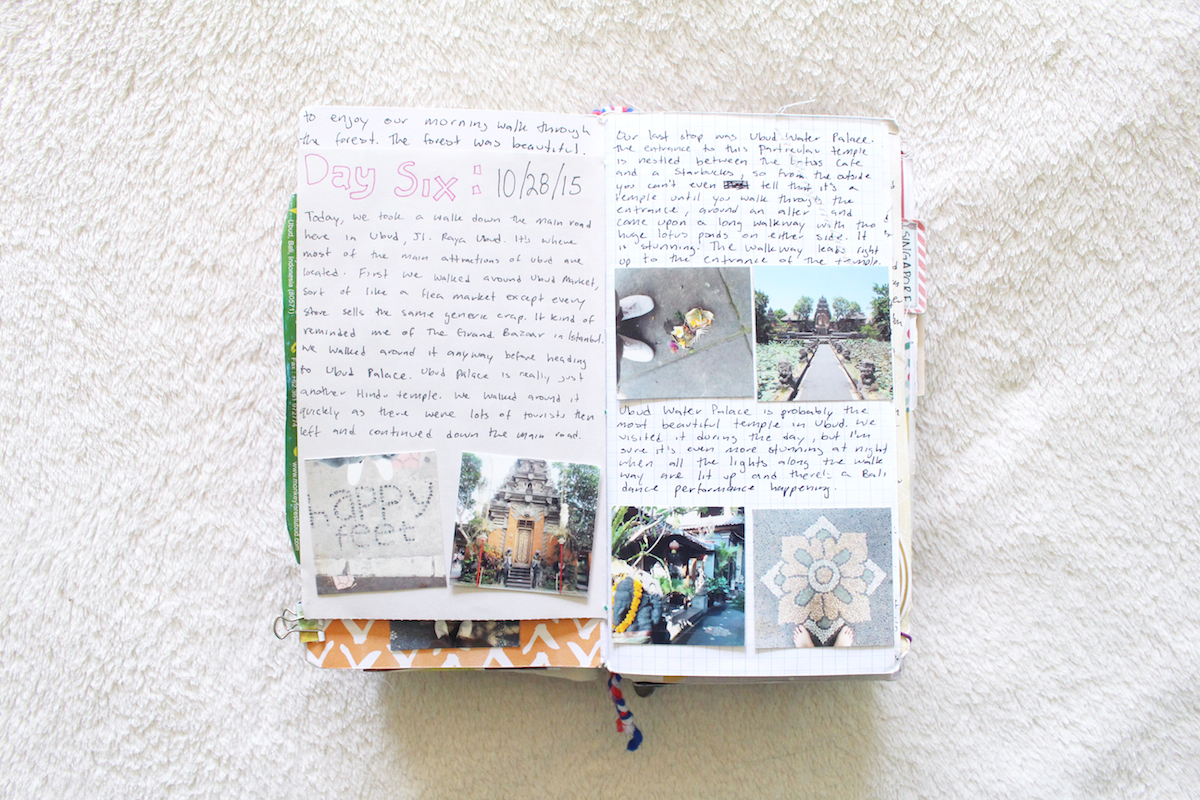 to enjoy our morning walk through
the forest. The forest was beautiful.
Day Six: 10/28/15
Today, we took a walk down the main road
here in Ubud, Jl. Raya Ubud. It's where
most of the main attractions of Ubud are
located. First we walked around Ubud Market,
sort of like a flea market except every
store sells the same generic crap. It kind of
reminded me of The Grand Bazaar in Istanbul.
We walked around it anyway before heading
to Ubud Palace. Ubud Palace is really just
another Hindu temple. We walked around it
quickly as there were lots of tourists then
left and continued down the main road.
happy
feet
Ubud, Bali, Indonesia (80571)
Our last stop was Ubud Water Palace.
The entrance to this particular temple
is nestled between the Lotus Cafe
and a Starbucks, so from the outside
you can't even tell that it's a
temple until you walk through the
entrance, around an alter and
came upon a long walkway with two
huge lotus ponds on either side. It
is stunning! The walkway leads right
up to the entrance of the temple.
Ubud Water Palace is probably the
most beautiful temple in Ubud. We
visited it during the day, but I'm
sure it's even more stunning at night
when all the lights along the walk
way are lit up and there's a Bali
dance performance happening.
SINGAPORE